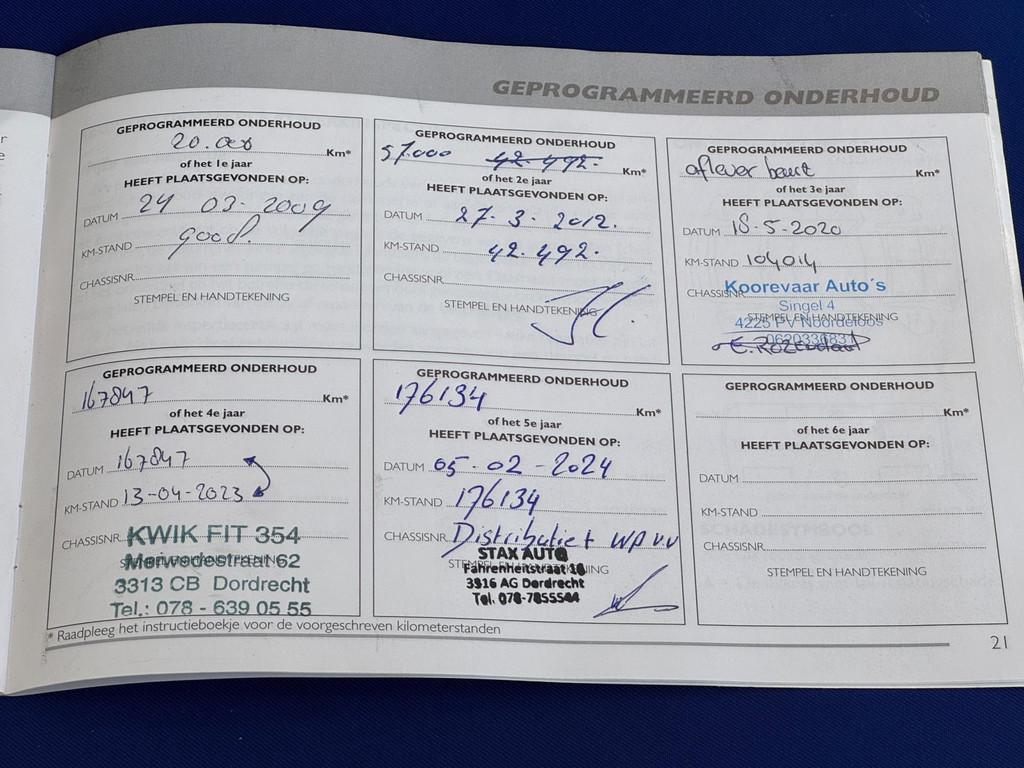 GEPROGRAMMEERD ONDERHOUD
GEPROGRAMMEERD ONDERHOUD
20.000
Km*
of het 1e jaar
HEEFT PLAATSGEVONDEN OP:
DATUM 24 03-2009
KM-STAND good.
CHASSISNR.
STEMPEL EN HANDTEKENING
GEPROGRAMMEERD ONDERHOUD
57.000 42.492.
Km*
of het 2e jaar
HEEFT PLAATSGEVONDEN OP:
DATUM 27-3-2012.
KM-STAND 42.492.
CHASSISNR.
STEMPEL EN HANDTEKENING
GEPROGRAMMEERD ONDERHOUD
aflever beurt
Km*
of het 3e jaar
HEEFT PLAATSGEVONDEN OP:
DATUM 18-5-2020
KM-STAND 104014
CHASSISNR.
Koorevaar Auto´s
Singel 4
STEMPEL EN HANDTEKENING
4225 PV Noordeloos
0620336831
GEPROGRAMMEERD ONDERHOUD
167847
Km*
of het 4e jaar
HEEFT PLAATSGEVONDEN OP:
DATUM 167847
KM-STAND 13-04-2023
CHASSISNR.
KWIK FIT 354
STEMPEL EN HANDTEKENING
Merwedestraat 62
3313 CB Dordrecht
Tel.: 078 - 639 05 55
GEPROGRAMMEERD ONDERHOUD
176134
Km*
of het 5e jaar
HEEFT PLAATSGEVONDEN OP:
DATUM 05-02-2024
KM-STAND 176134
CHASSISNR. Distributie + WP v.v
STAX AUTO
STEMPEL EN HANDTEKENING
Fahrenheitstraat 18
3316 AG Dordrecht
Tel. 078-7855504
GEPROGRAMMEERD ONDERHOUD
Km*
of het 6e jaar
HEEFT PLAATSGEVONDEN OP:
DATUM
KM-STAND
CHASSISNR.
STEMPEL EN HANDTEKENING
* Raadpleeg het instructieboekje voor de voorgeschreven kilometerstanden
21